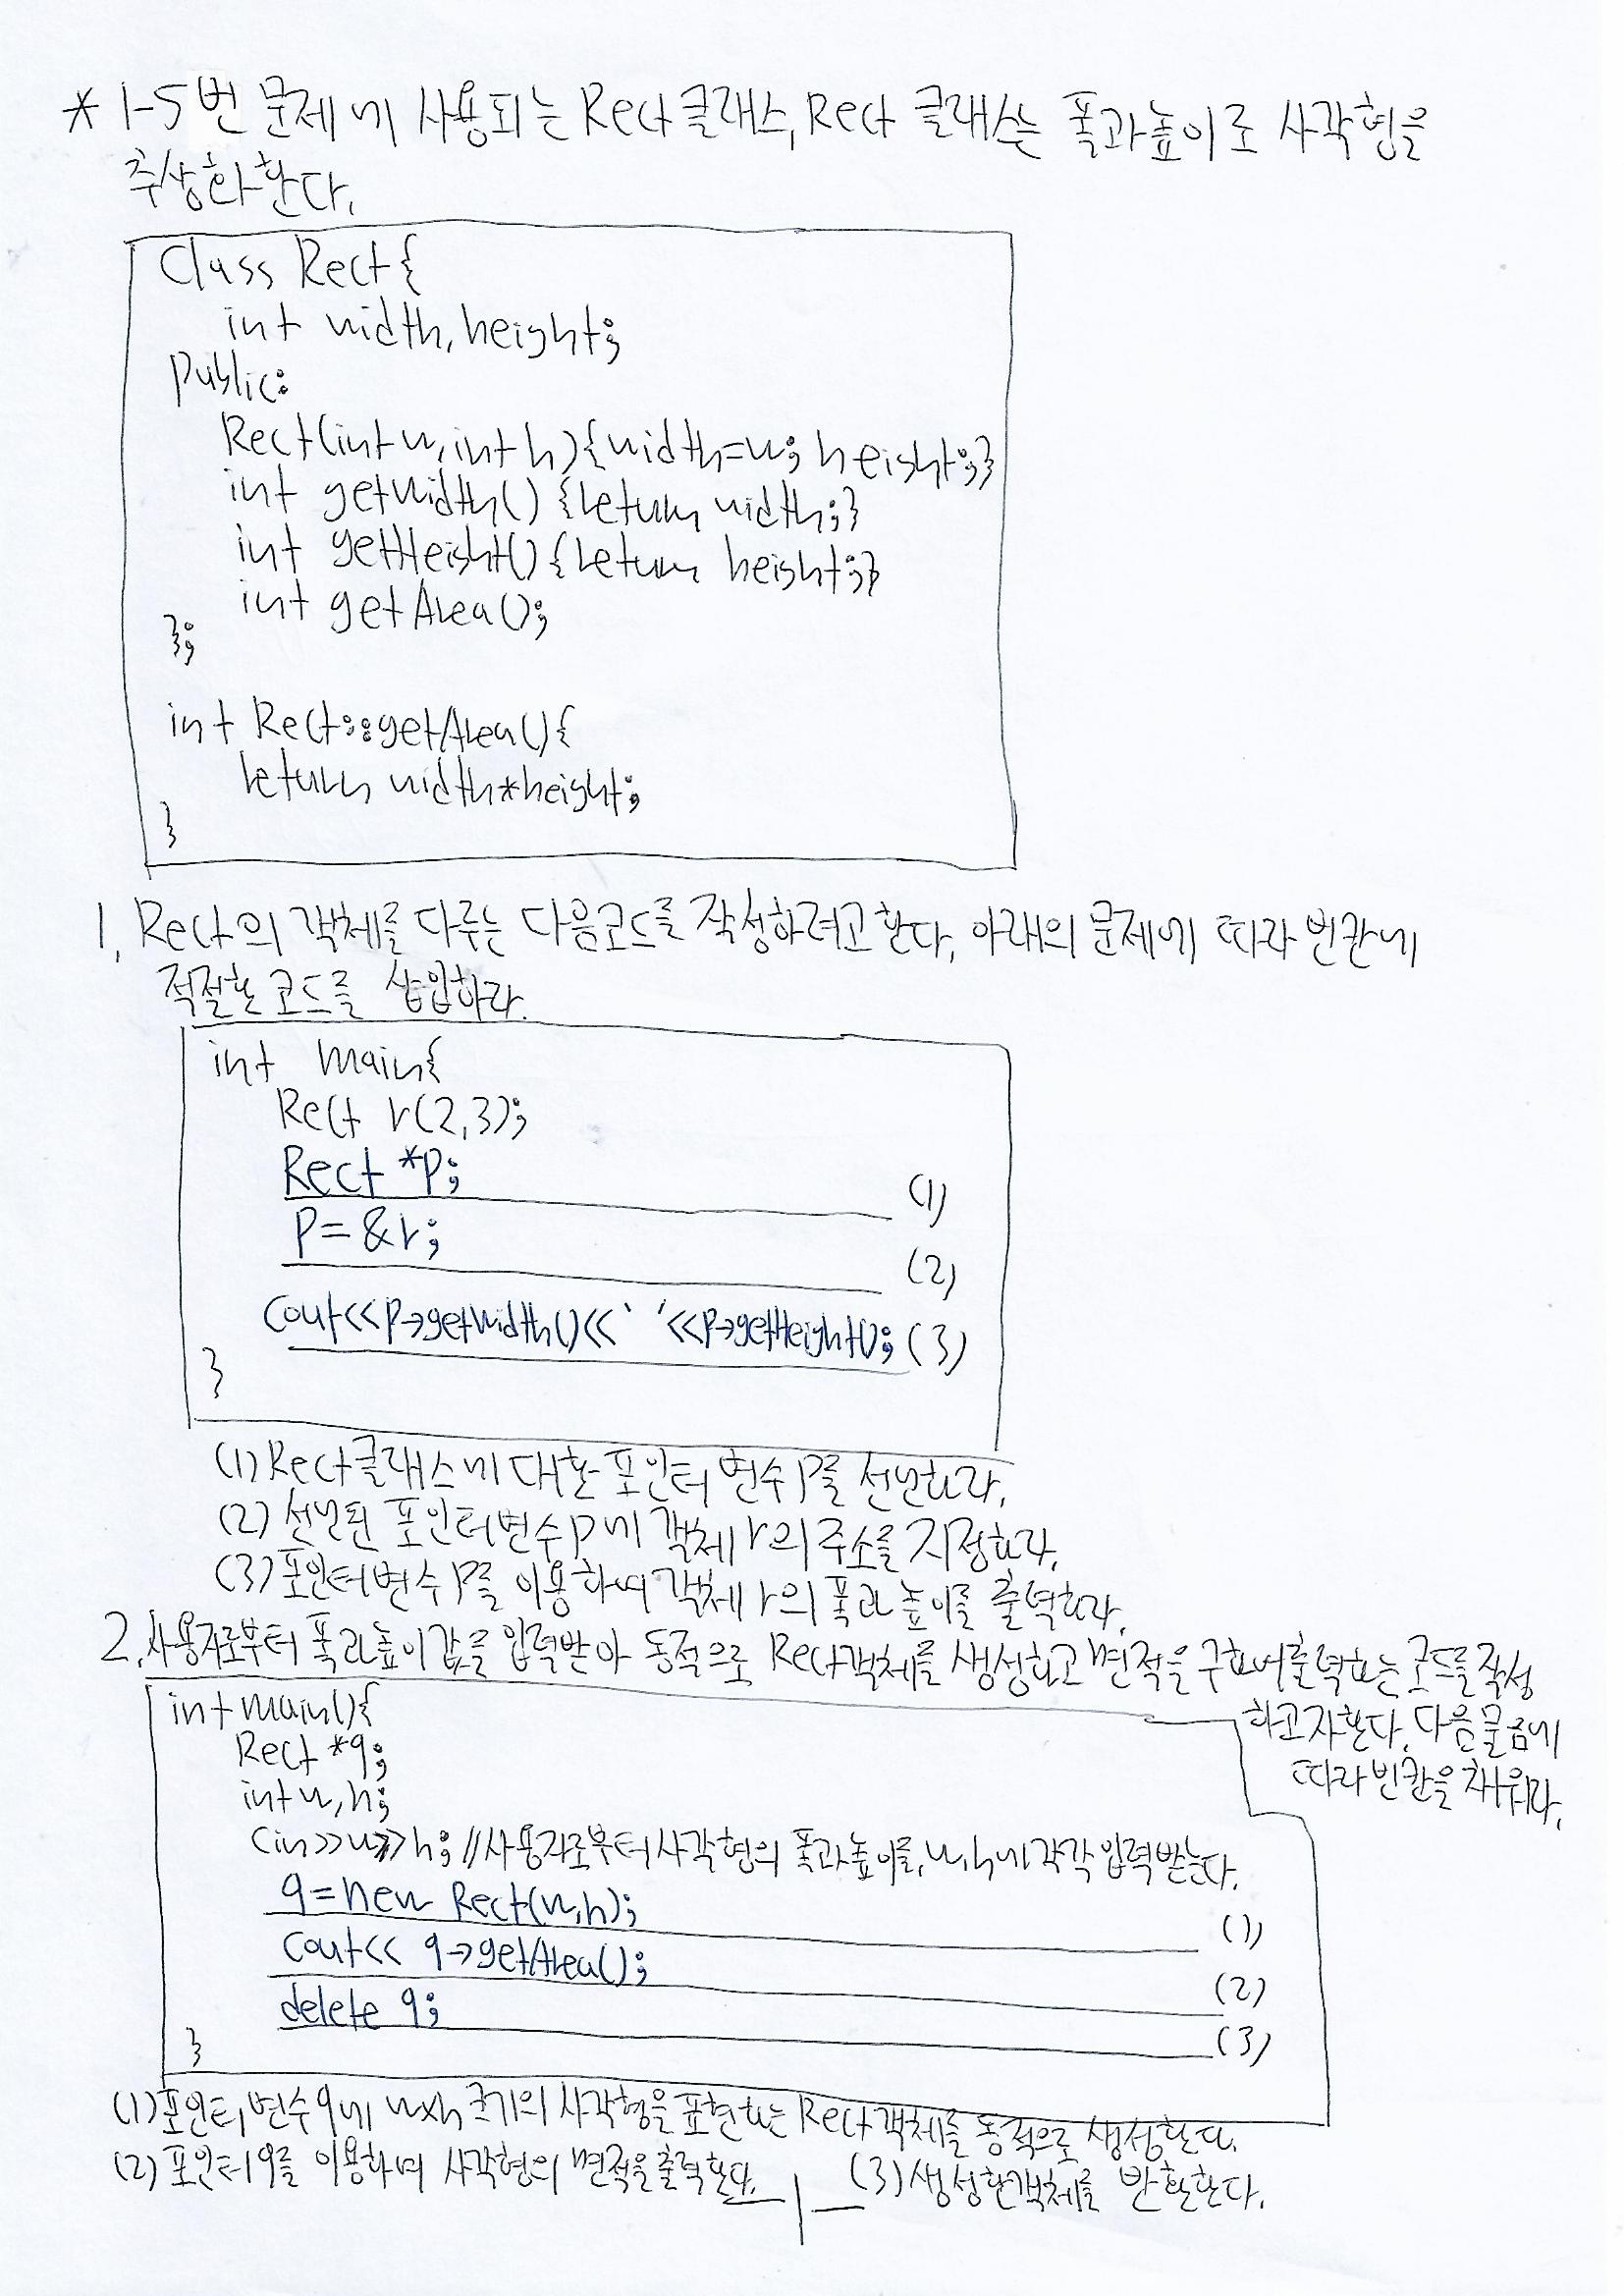 * 1-5번 문제에 사용되는 Rect 클래스, Rect 클래스는 폭과 높이로 사각형을
추상화한다.
Class Rect{
int width, height;
public:
Rect(int w, int h){width=w; height;}
int getWidth() {return width;}
int getHeight() {return height;}
int getArea();
};
int Rect::getArea(){
return width*height;
}
1. Rect의 객체를 다루는 다음 코드를 작성하려고 한다. 아래의 문제에 따라 빈칸에
적절한 코드를 삽입하라.
int main{
Rect r(2,3);
Rect *p; (1)
p=&r; (2)
Cout<<p->getWidth()<<' '<<p->getHeight(); (3)
}
(1) Rect 클래스에 대한 포인터 변수 p를 선언하라.
(2) 선언된 포인터 변수 p에 객체 r의 주소를 지정하라.
(3) 포인터 변수 p를 이용하여 객체 r의 폭과 높이를 출력하라.
2. 사용자로부터 폭과 높이 값을 입력받아 동적으로 Rect 객체를 생성하고 면적을 구하여 출력하는 코드를 작성
하고자 한다. 다음 물음에
따라 빈칸을 채워라.
int main(){
Rect *q;
int w,h;
Cin>>w>>h; //사용자로부터 사각형의 폭과 높이를, w, h에 각각 입력받는다.
q=new Rect(w,h); (1)
Cout<< q->getArea(); (2)
delete q; (3)
}
(1) 포인터 변수 q에 wxh 크기의 사각형을 표현하는 Rect 객체를 동적으로 생성한다.
(2) 포인터 q를 이용하여 사각형의 면적을 출력한다. (3) 생성한 객체를 반환한다.